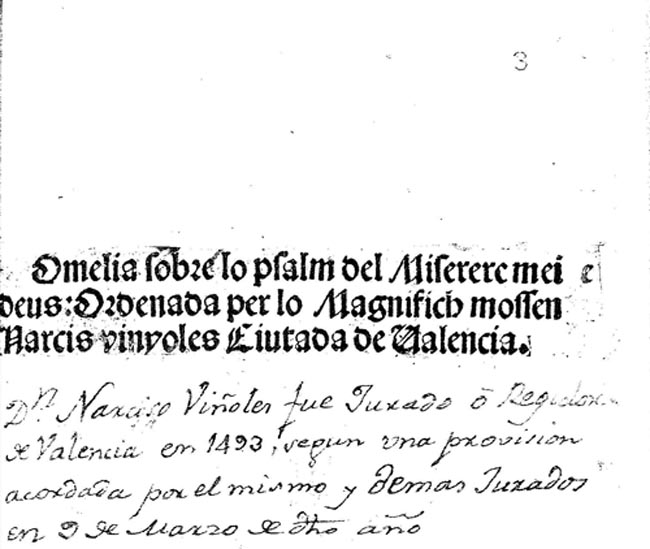 3
Omelia sobre lo psalm del Miserere mei
deus: Ordenada per lo Magnifich mossen
Narcis vinyoles Ciutada de Ualencia.
Dn. Narciso Viñoles fue Jurado ô Regidor
de Valencia en 1493, segun vna provision
acordada por el mismo y demas Jurados
en 9 de Marzo de dho año